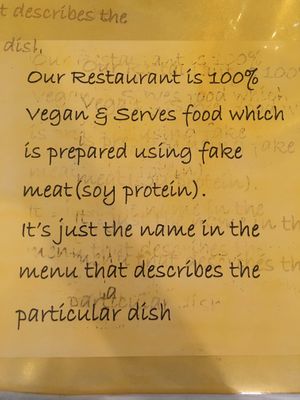 t describes the
dish.
Our Restaurant is 100%
Vegan & Serves food which
is prepared using fake
meat(soy protein).
It's just the name in the
menu that describes the
particular dish